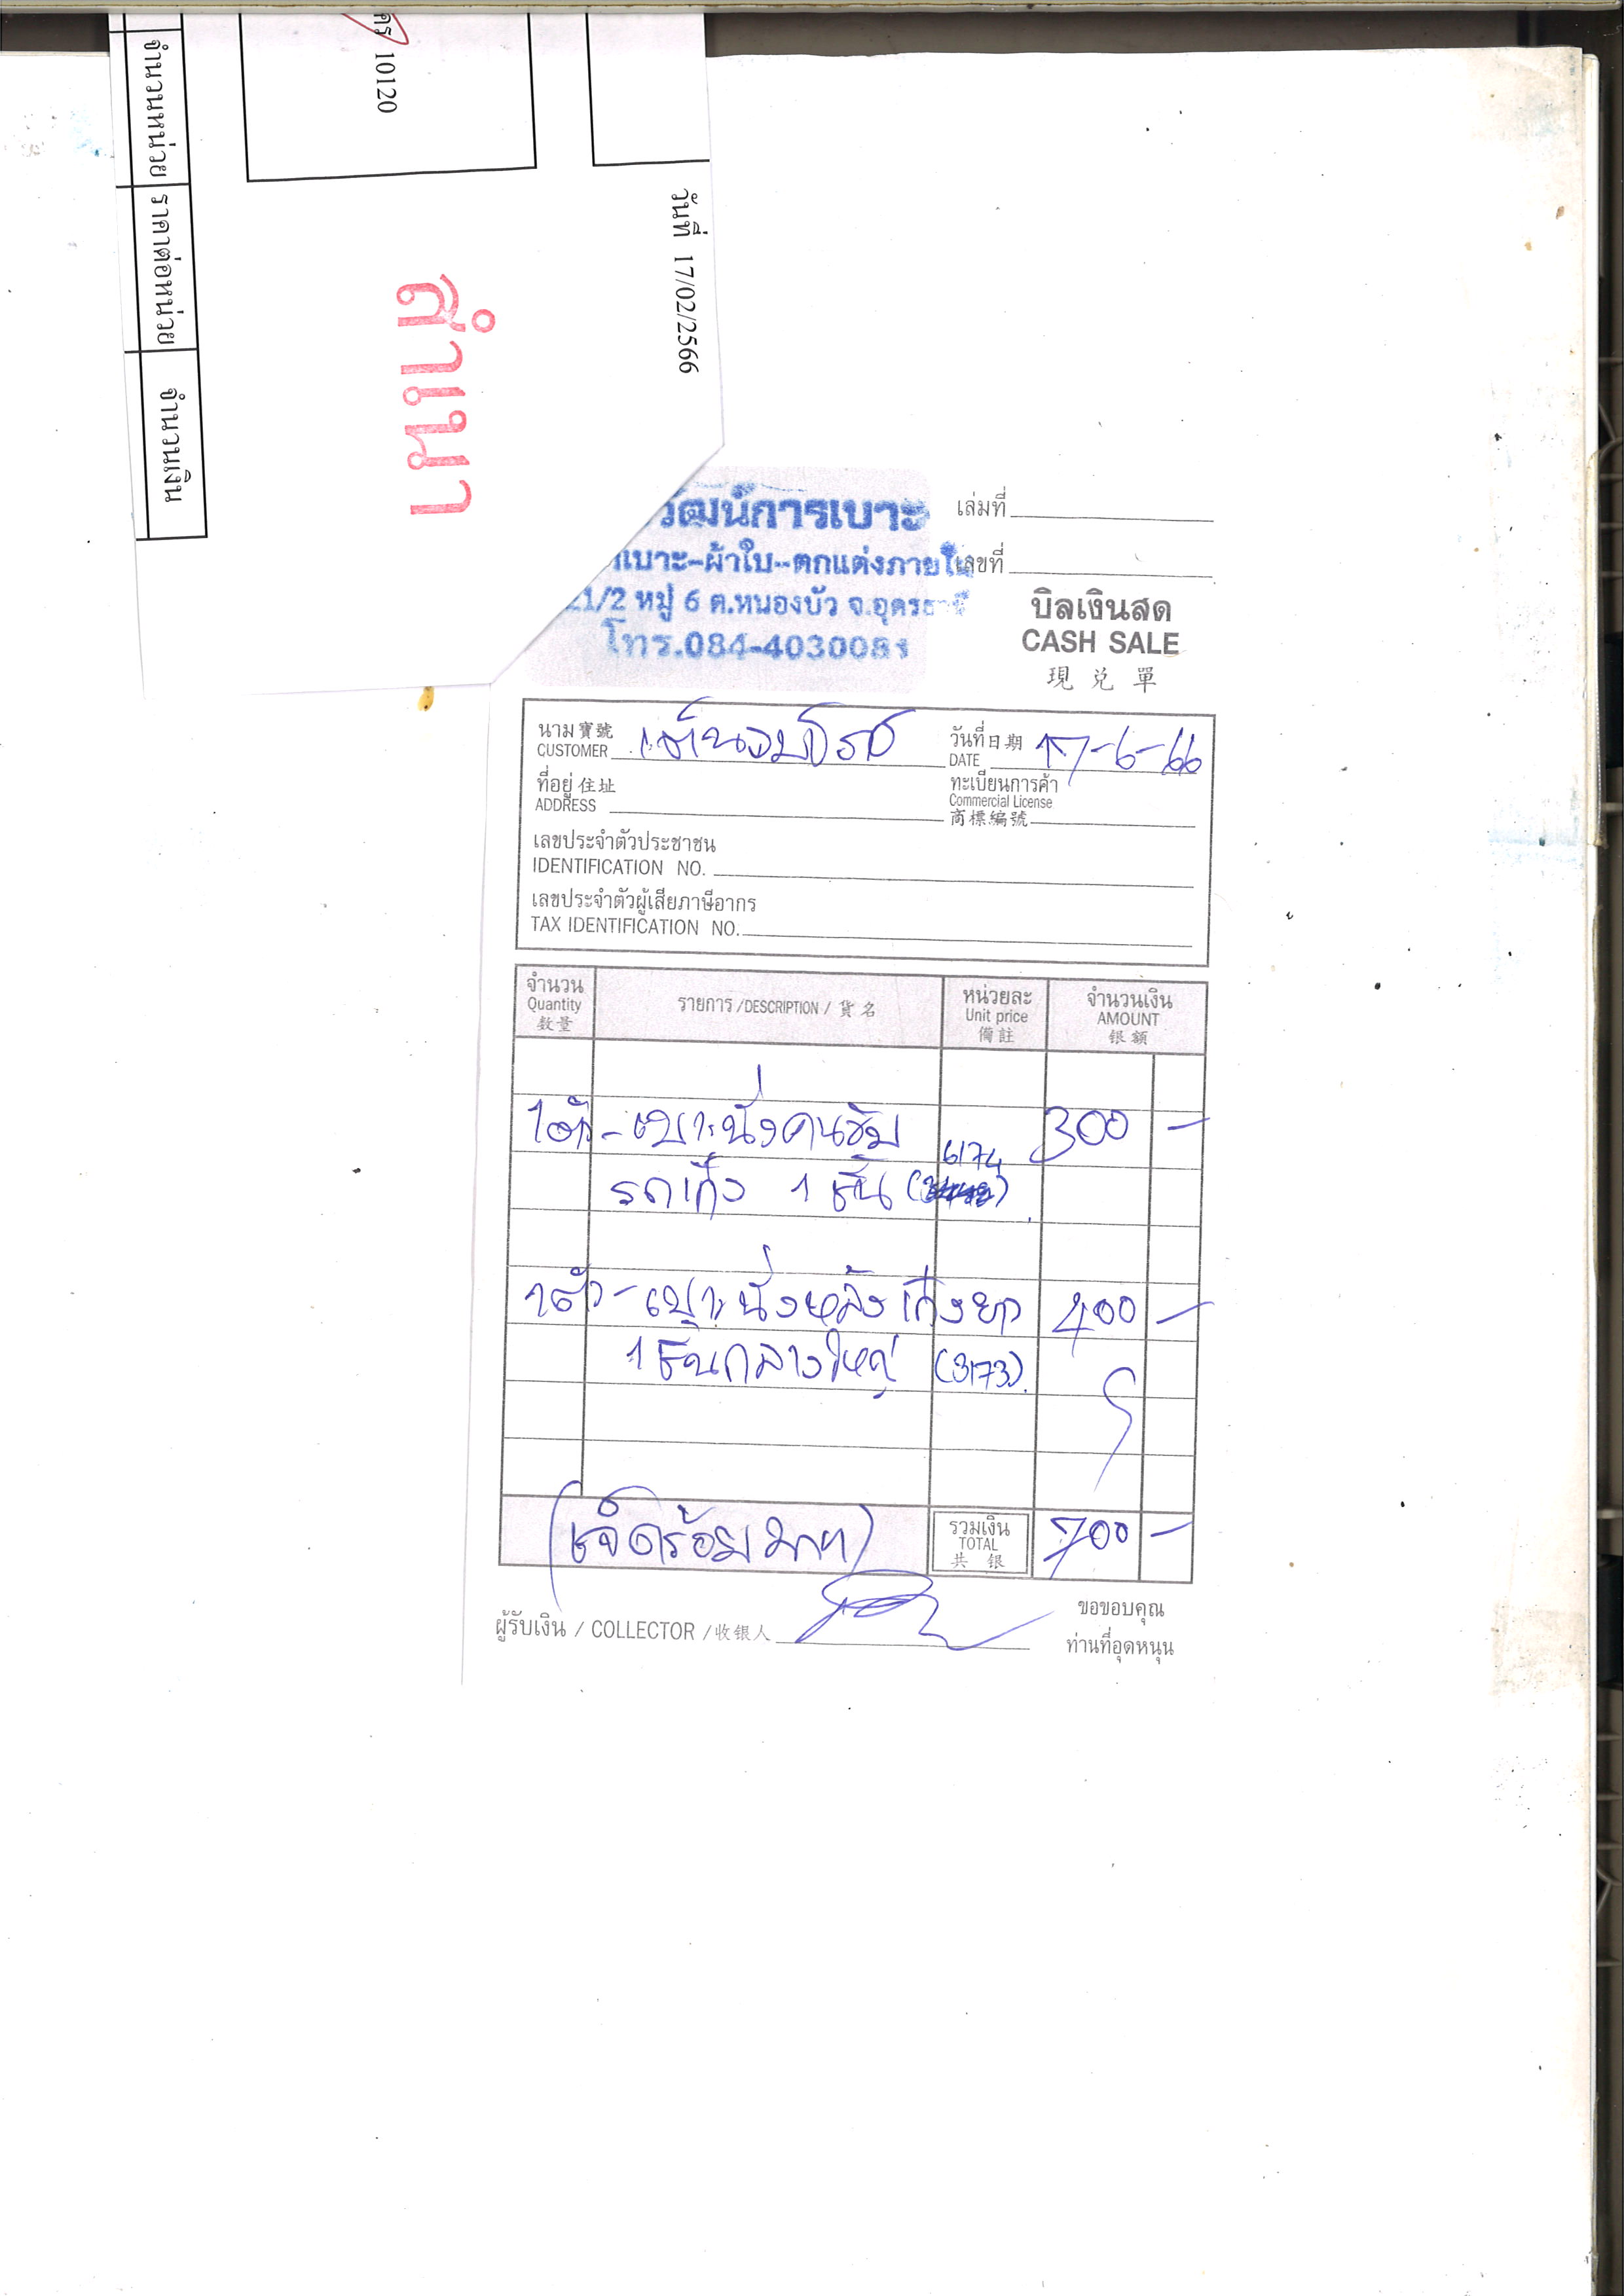 คร 10120
วันที่ 17/02/2566
สำเนา
จำนวนหน่วย ราคาต่อหน่วย จำนวนเงิน
วัฒน์การเบาะ
เบาะ-ผ้าใบ-ตกแต่งภายใน
21/2 หมู่ 6 ต.หนองบัว จ.อุดรธานี
โทร.084-4030081
เล่มที่
เลขที่
บิลเงินสด
CASH SALE
現兌單
นาม寶號
CUSTOMER
วันที่日期 17-6-66
DATE
ที่อยู่住址
ADDRESS
ทะเบียนการค้า
Commercial License
商標編號
เลขประจำตัวประชาชน
IDENTIFICATION NO.
เลขประจำตัวผู้เสียภาษีอากร
TAX IDENTIFICATION NO.
จำนวน รายการ/DESCRIPTION/貨名 หน่วยละ จำนวนเงิน
Quantity Unit price AMOUNT
数量 備註 银额
1ตัว - เบาะนั่งคนขับ 300 -
6174
รถเก๋ง 1 ชิ้น
1ตัว - เบาะนั่งหลังเก๋งยก 400 -
1 ชิ้นกลางใหญ่ (3173)
(เจ็ดร้อยบาท) รวมเงิน 700 -
TOTAL
共银
ผู้รับเงิน / COLLECTOR /收银人
ขอขอบคุณ
ท่านที่อุดหนุน